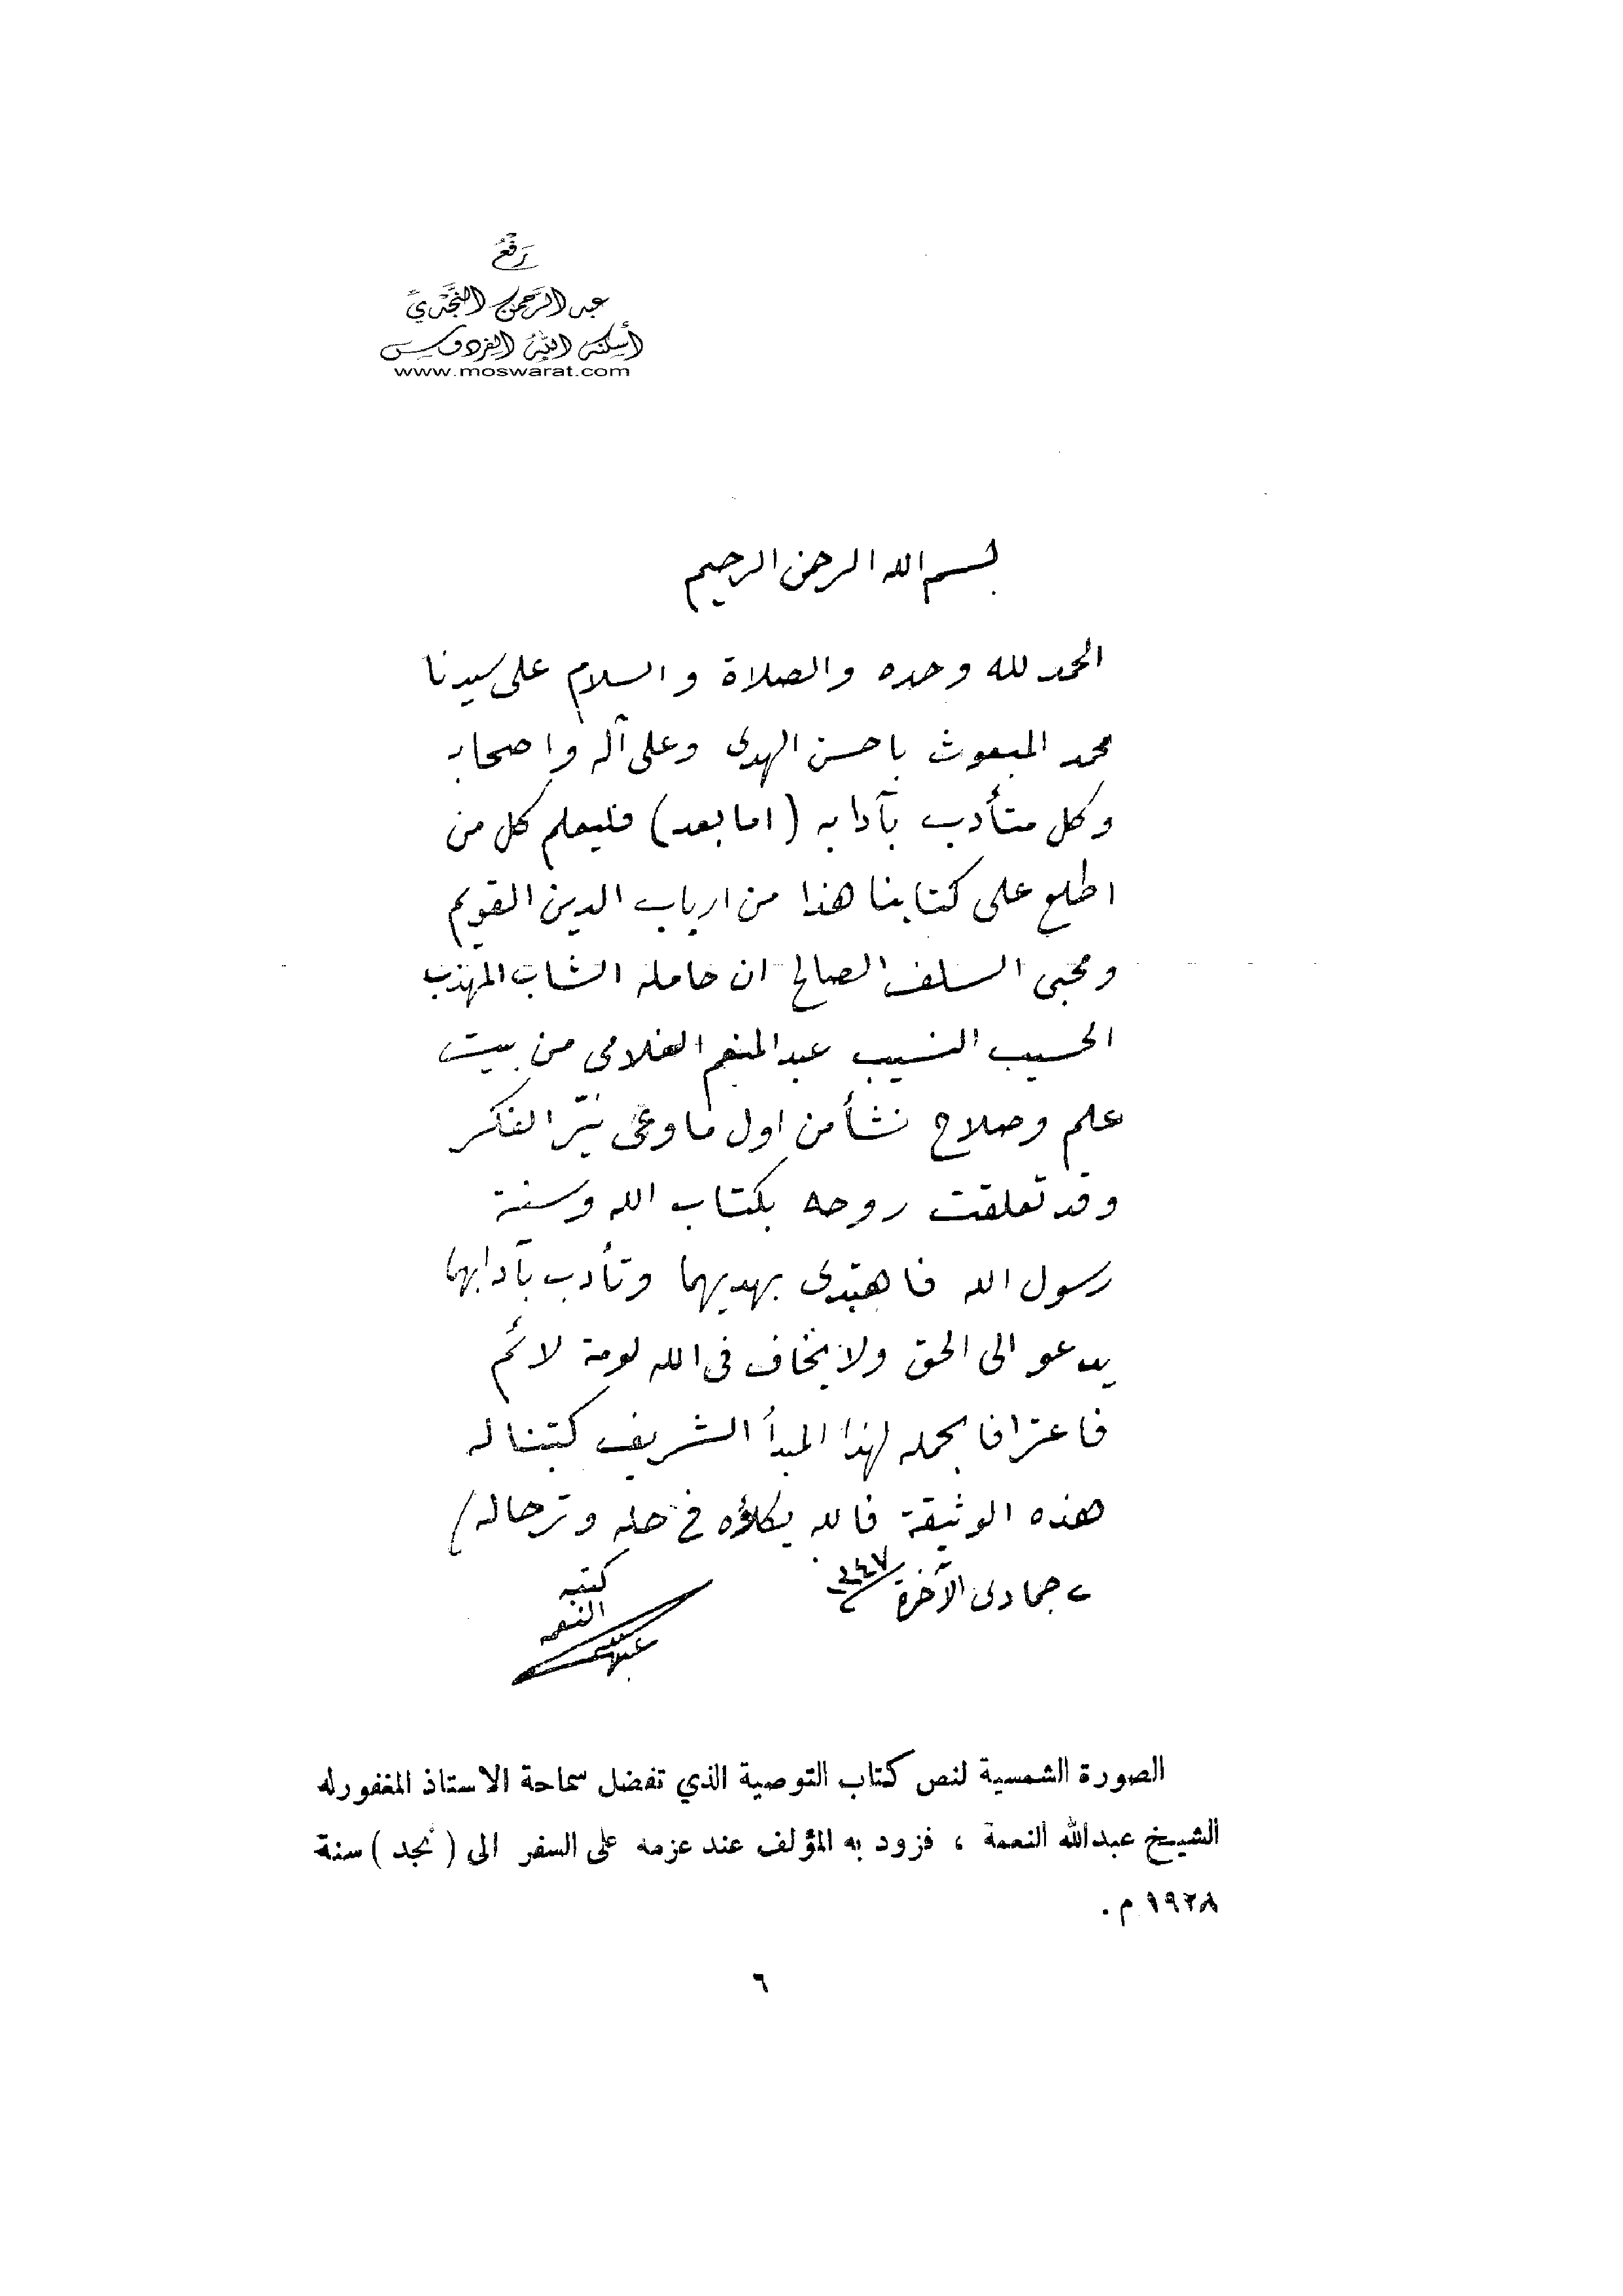 رَفْعُ
عبد الرَّحمن النَّجدي
أسكنه الله الفردوس
www.moswarat.com
بسم الله الرحمن الرحيم
الحمد لله وحده والصلاة والسلام على سيدنا
محمد المبعوث باحسن الهدى وعلى آله واصحابه
وكل متأدب بآدابه (اما بعد) فليعلم كل من
اطلع على كتابنا هذا من ارباب الدين القويم
ومحبى السلف الصالح ان حامله الشاب المهذب
الحسيب النسيب عبد المنعم الغلامى من بيت
علم وصلاح نشأ من اول ما وعى نيّر الفكر
وقد تعلقت روحه بكتاب الله وسنة
رسول الله فاهتدى بهديهما وتأدب بآدابهما
يدعو الى الحق ولا يخاف فى الله لومة لائم
فاعترافا بحمله لهذا المبدأ الشريف كتبنا له
هذه الوثيقة فالله يكلؤه في حله وترحاله /
جمادى الآخرة
كتبه
النعمه
عبدالله
الصورة الشمسية لنص كتاب التوصية الذي تفضل سماحة الاستاذ المغفورله
الشيخ عبدالله النعمة ، فزود به المؤلف عند عزمه على السفر الى ( نجد ) سنة
١٩٢٨ م .
٦